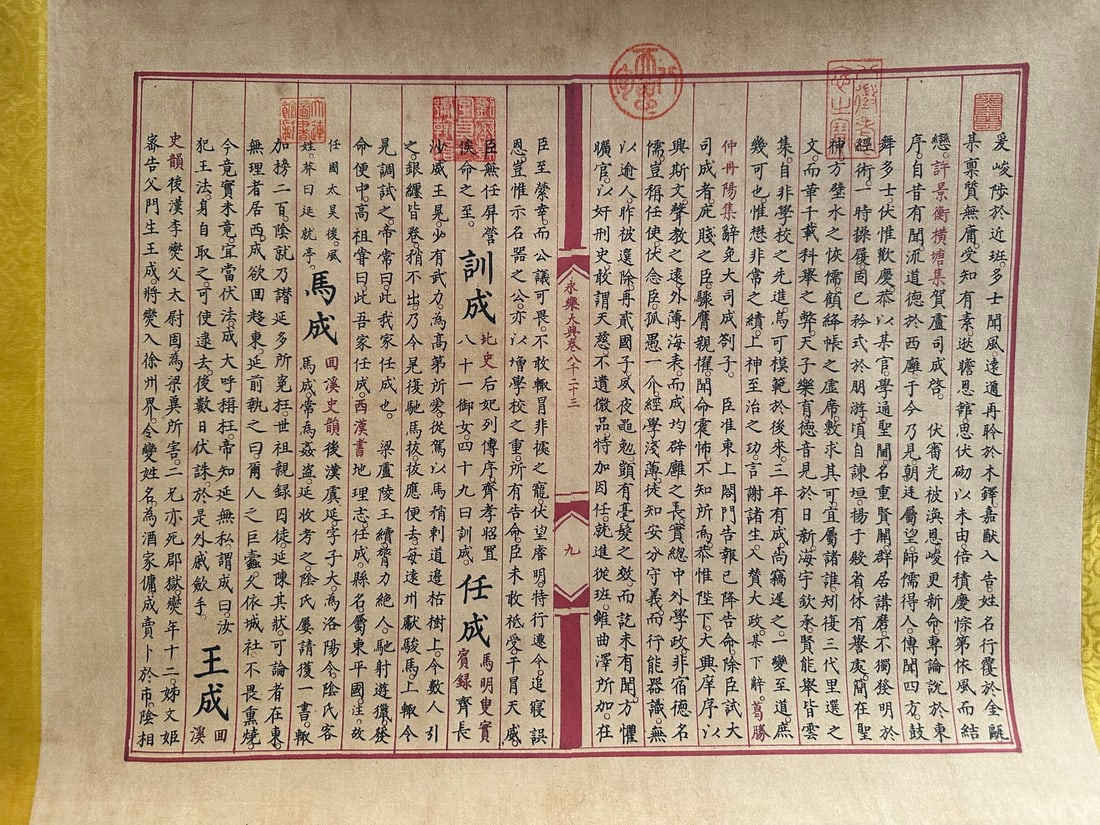 爰峻陟於近班。多士聞風。遠邇再聆於木鐸。嘉猷入告。姓名行覆於金甌
某稟質無庸。受知有素。逖瞻恩館。思伏砌以未由。倍積慶悰。第依風而結
戀。許景衡橫塘集賀盧司成啓。伏審光被渙恩。峻更新命。專論說於東
序。自昔有聞。流道德於西廱。于今乃見。朝廷屬望。師儒得人。傳聞四方。鼓
舞多士。伏惟歡慶。恭以某官。學通聖閫。名重賢關。群居講磨。不獨發明於
經術。一時操履。固已矜式於朋游。頃自諫垣。揚于殿省。休有譽處。簡在聖
神。方璧水之恢儒。顧絳帳之虛席。敷求其可。宜屬諸誰。矧復三代里選之
文。而革千載科舉之弊。天子樂育。德音見於日新。海宇欽承。賢能舉皆雲
集。自非學校之先進。焉可模範於後來。三年有成。尚竊遲之。一變至道。庶
幾可也。惟懋非常之績。上神至治之功。言謝諸生。入贊大政。某下辭。葛勝
仲丹陽集辭免大司成劄子。臣准東上閤門告報。已降告命。除臣試大
司成者。庇賤之臣。驟膺親擢。聞命震怖。不知所為。恭惟陛下。大興庠序。以
興斯文。聲教之遠。外薄海表。而成均辟廱之長。實總中外學政。非宿德名
儒。豈稱任使。伏念臣。孤愚一介。經學淺薄。徒知安分守義。而行能器識。無
以逾人。昨被選除。再貳國子。夙夜黽勉。顗有毫髮之效。而訖未有聞。方懼
曠官。以奸刑史。敢謂天慈。不遺微品。特加因任。就進從班。雖曲澤所加。在
永樂大典卷八千二十三
九
臣至榮幸。而公議可畏。不敢輒冒非據之寵。伏望睿明。特行遷令。追寢誤
恩。豈惟示名器之公。亦以增學校之重。所有告命。臣未敢祗受。干冒天威。
臣無任屏營
俟命之至。訓成 北史后妃列傳序。齊孝昭置八十一御女。四十九曰訓成。任成 馬明叟實賓録。齊長
沙威王晃。少有武力。為高帝所愛。從駕以馬矟刺道邊枯樹上。令數人引
之。銀纏皆卷。矟不出。乃令晃復馳馬拔。拔應便去。每遠州獻駿馬。上輒令
晃調試之。帝常曰。此我家任成也。梁廬陵王續。膂力絕人。馳射遊獵。後
命便中。高祖嘗曰。此吾家任成。西漢書地理志。任成。縣名。屬東平國。注。故
任國。太昊後。風
姓。莽曰延就亭。馬成 回溪史韻後漢虞延字子大。為洛陽令。陰氏客馬成。常為姦盜。延收考之。陰氏屢請獲一書。輒
加榜二百。陰就乃譖延多所寃枉。世祖親録囚徒。延陳其狀。可論者在東。
無理者居西。成欲回趨東。延前執之曰。爾人之巨蠹。久依城社。不畏熏燒。
今竟實未竟。宜當伏法。成大呼稱枉。帝知延無私。謂成曰。汝
犯王法。身自取之。可使速去。後數日伏誅。於是外戚歛手。王成 回溪
史韻後漢李燮父太尉固。為梁冀所害。二兄亦死郡獄。燮年十二。姊文姬
審告父門生王成。將燮入徐州界。令變姓名為酒家傭。成賣卜於市。陰相